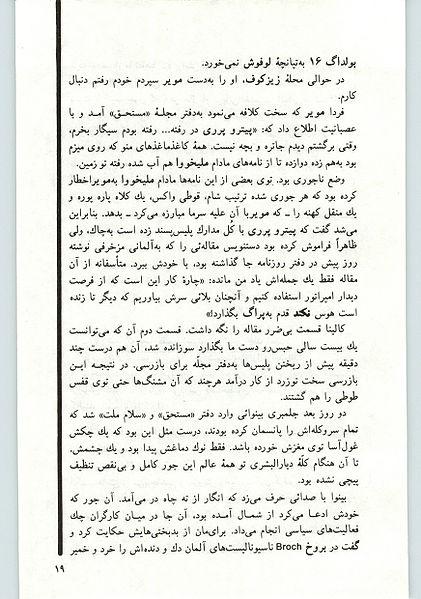 بولداگ ۱۶ به‌تپانچهٔ لوفوش نمی‌خورد.
در حوالی محلهٔ زیزکوف، او را به‌دست مویر سپردم خودم رفتم دنبال
کارم.
فردا مویر که سخت کلافه می‌نمود به‌دفتر مجلهٔ «مستحق» آمد و با
عصبانیت اطلاع داد که: «پیترو پرری در رفته... رفته بودم سیگار بخرم،
وقتی برگشتم دیدم جاتره و بچه نیست. همهٔ کاغذماغذهای منو که روی میزم
بود به‌هم زده دوازده تا از نامه‌های مادام ملیخووا هم آب شده رفته تو زمین.
وضع ناجوری بود. توی بعضی از این نامه‌ها مادام ملیخووا به‌مویر اخطار
کرده بود که هر جوری شده ترتیب شام، قوطی واکس، یك کلاه پاره پوره و
یك منقل کهنه را ــ که مویر با آن علیه سرما مبارزه می‌کرد ــ بدهد. بنابراین
می‌شد گفت که پیترو پرری با کُل مدارك پلیس‌پسند زده است به‌چاك، ولی
ظاهراً فراموش کرده بود دستنویس مقاله‌ئی را که به‌آلمانی مزخرفی نوشته
روز پیش در دفتر روزنامه جا گذاشته بود، با خودش ببرد. متأسفانه از آن
مقاله فقط یك جمله‌اش یاد من مانده: «چارهٔ کار این است که از فرصت
دیدار امپراتور استفاده کنیم و آنچنان بلائی سرش بیاوریم که دیگر تا زنده
است هوس نکند قدم به‌پراگ بگذارد!»
کالینا قسمت بی‌ضرر مقاله را نگه داشت. قسمت دوم آن که می‌توانست
یك بیست سالی حبس رو دست ما بگذارد سوزانده شد، آن هم درست چند
دقیقه پیش از ریختن پلیس‌ها به‌دفتر مجلّه برای بازرسی. در نتیجه این
بازرسی سخت توزرد از کار درآمد هرچند که آن مشنگ‌ها حتی توی قفس
طوطی را هم گشتند.
دو روز بعد جلمبری بینوائی وارد دفتر «مستحق» و «سلام ملت» شد که
تمام سروکله‌اش را پانسمان کرده بودند، درست مثل این بود که یك چکش
غول‌آسا توی مغزش خورده باشد. فقط نوك دماغش پیدا بود و یك چشمش.
تا آن هنگام کلّهٔ دیارالبشری تو همهٔ عالم این جور کامل و بی‌نقص تنظیف
پیچی نشده بود.
بینوا با صدائی حرف می‌زد که انگار از ته چاه در می‌آمد. آن جور که
خودش ادعا می‌کرد از شمال آمده بود، آن جا در میان کارگران چك
فعالیت‌های سیاسی انجام می‌داد. برای‌مان از بدبختی‌هایش حکایت کرد و
گفت در بروخ Broch ناسیونالیست‌های آلمان دك و دنده‌اش را خرد و خمیر
۱۹